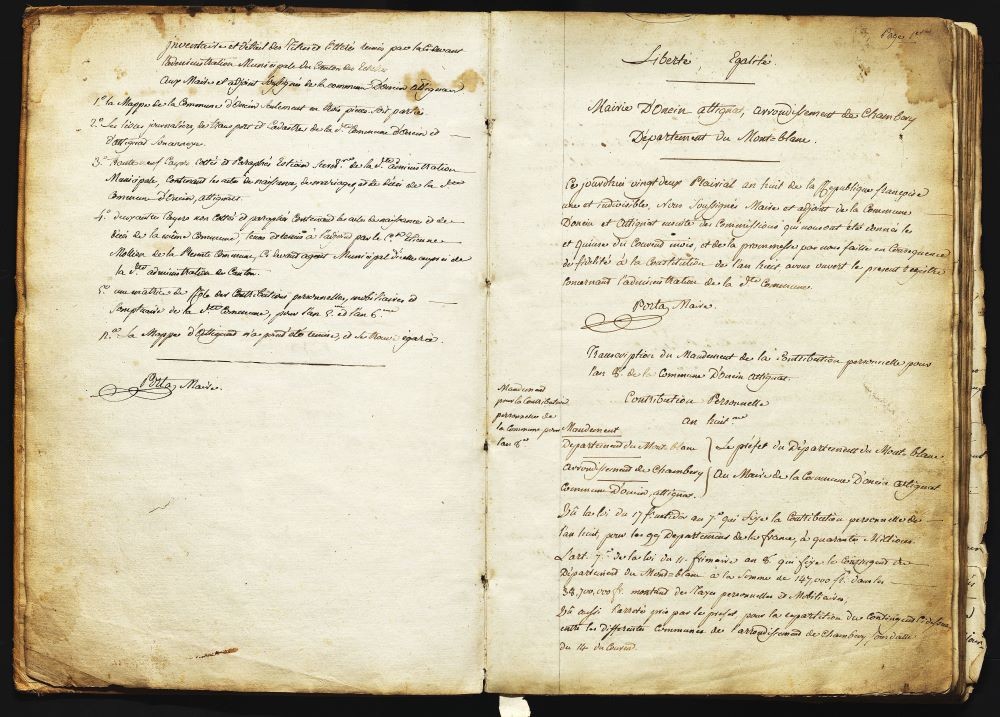 Inventaire et détail des titres et effets remis par la cidevant
l'administration Municipale du Canton des Echelles
aux Maire et adjoint soussignés de la commune D'oncin attignat
1.o la Mappe de la Commune d'Oncin seulement en trois pièces soit parties
2.o Les livres journaliers de transport et Cadastre de la d.te Commune d'Oncin et
d'attignat
3.o neuf Cayers cottés et Paraphés secret.re de la d.te administration
Municipale, contenant les actes de naissance, de mariages, et de décès de la d.te
Commune d'Oncin, attignat.
4.o deux autres Cayers non cotté et paraphé contenant les actes de naissance et de
décès de la même Commune, tenus et remis à par le C.en Etienne
Mollier de la Commune, Ci devant agent Municipal d'icelle auprès de
la d.te administration de Canton.
5.o une matrice de Rôle des Contributions personnelles, mobiliaires et
Somptuaire de la d.te Commune, pour l'an 5.me et l'an 6.me
n.a La Mappe d'Attignat n'a point été remise, et se trouve égarée.
Porta Maire.
Page 1ere
Liberté, Egalité.
Mairie D'Oncin attignat, arrondissement de Chambery
Département du Mont=blanc.
Ce jourdhui vingt deux Plairial an huit de la République française
une et indivisible, Nous Soussignés Maire et adjoint de la Commune
D'oncin et Attignat ensuite des Commissions qui nous ont été données les
et Quinze du Courant mois, et de la promesse par nous faite en Consequence
de fidélité à la Constitution de l'an huit avons ouvert le present registre
concernant l'administration de la d.te Commune.
Porta Maire.
Transcription du Mandement de la Contribution personnelle pour
l'an 8.e de la Commune D'Oncin attignat.
Contribution Personnelle
an huit.me
Mandement
pour la Contribution
personnelle de
la Commune pour
l'an 8.e
Mandement
Département du Mont-blanc
arrondissement de Chambery
Commune D'oncin, attignat.
Le préfet du Département du Mont-blanc
Au Maire de la Commune D'oncin attignat
Vû la loi du 17 fructidor an 7.e qui fixe la Contribution personnelle de
l'an huit, pour les 99 Departemens de la france, à quarante Millions.
L'art. 7.e de la loi du 11 frimaire an 8.e qui fixe le Contingent du
Département du Mont=blanc à la Somme de 147,000 f. dans les
38,700,000 f. montant des taxes personnelles et Mobiliaires,
Vû aussi l'arreté pris par le préfet pour la repartition du Contingent
entre les differentes Communes de l'arrondissement de Chambery sous date
du 14 du Courant.